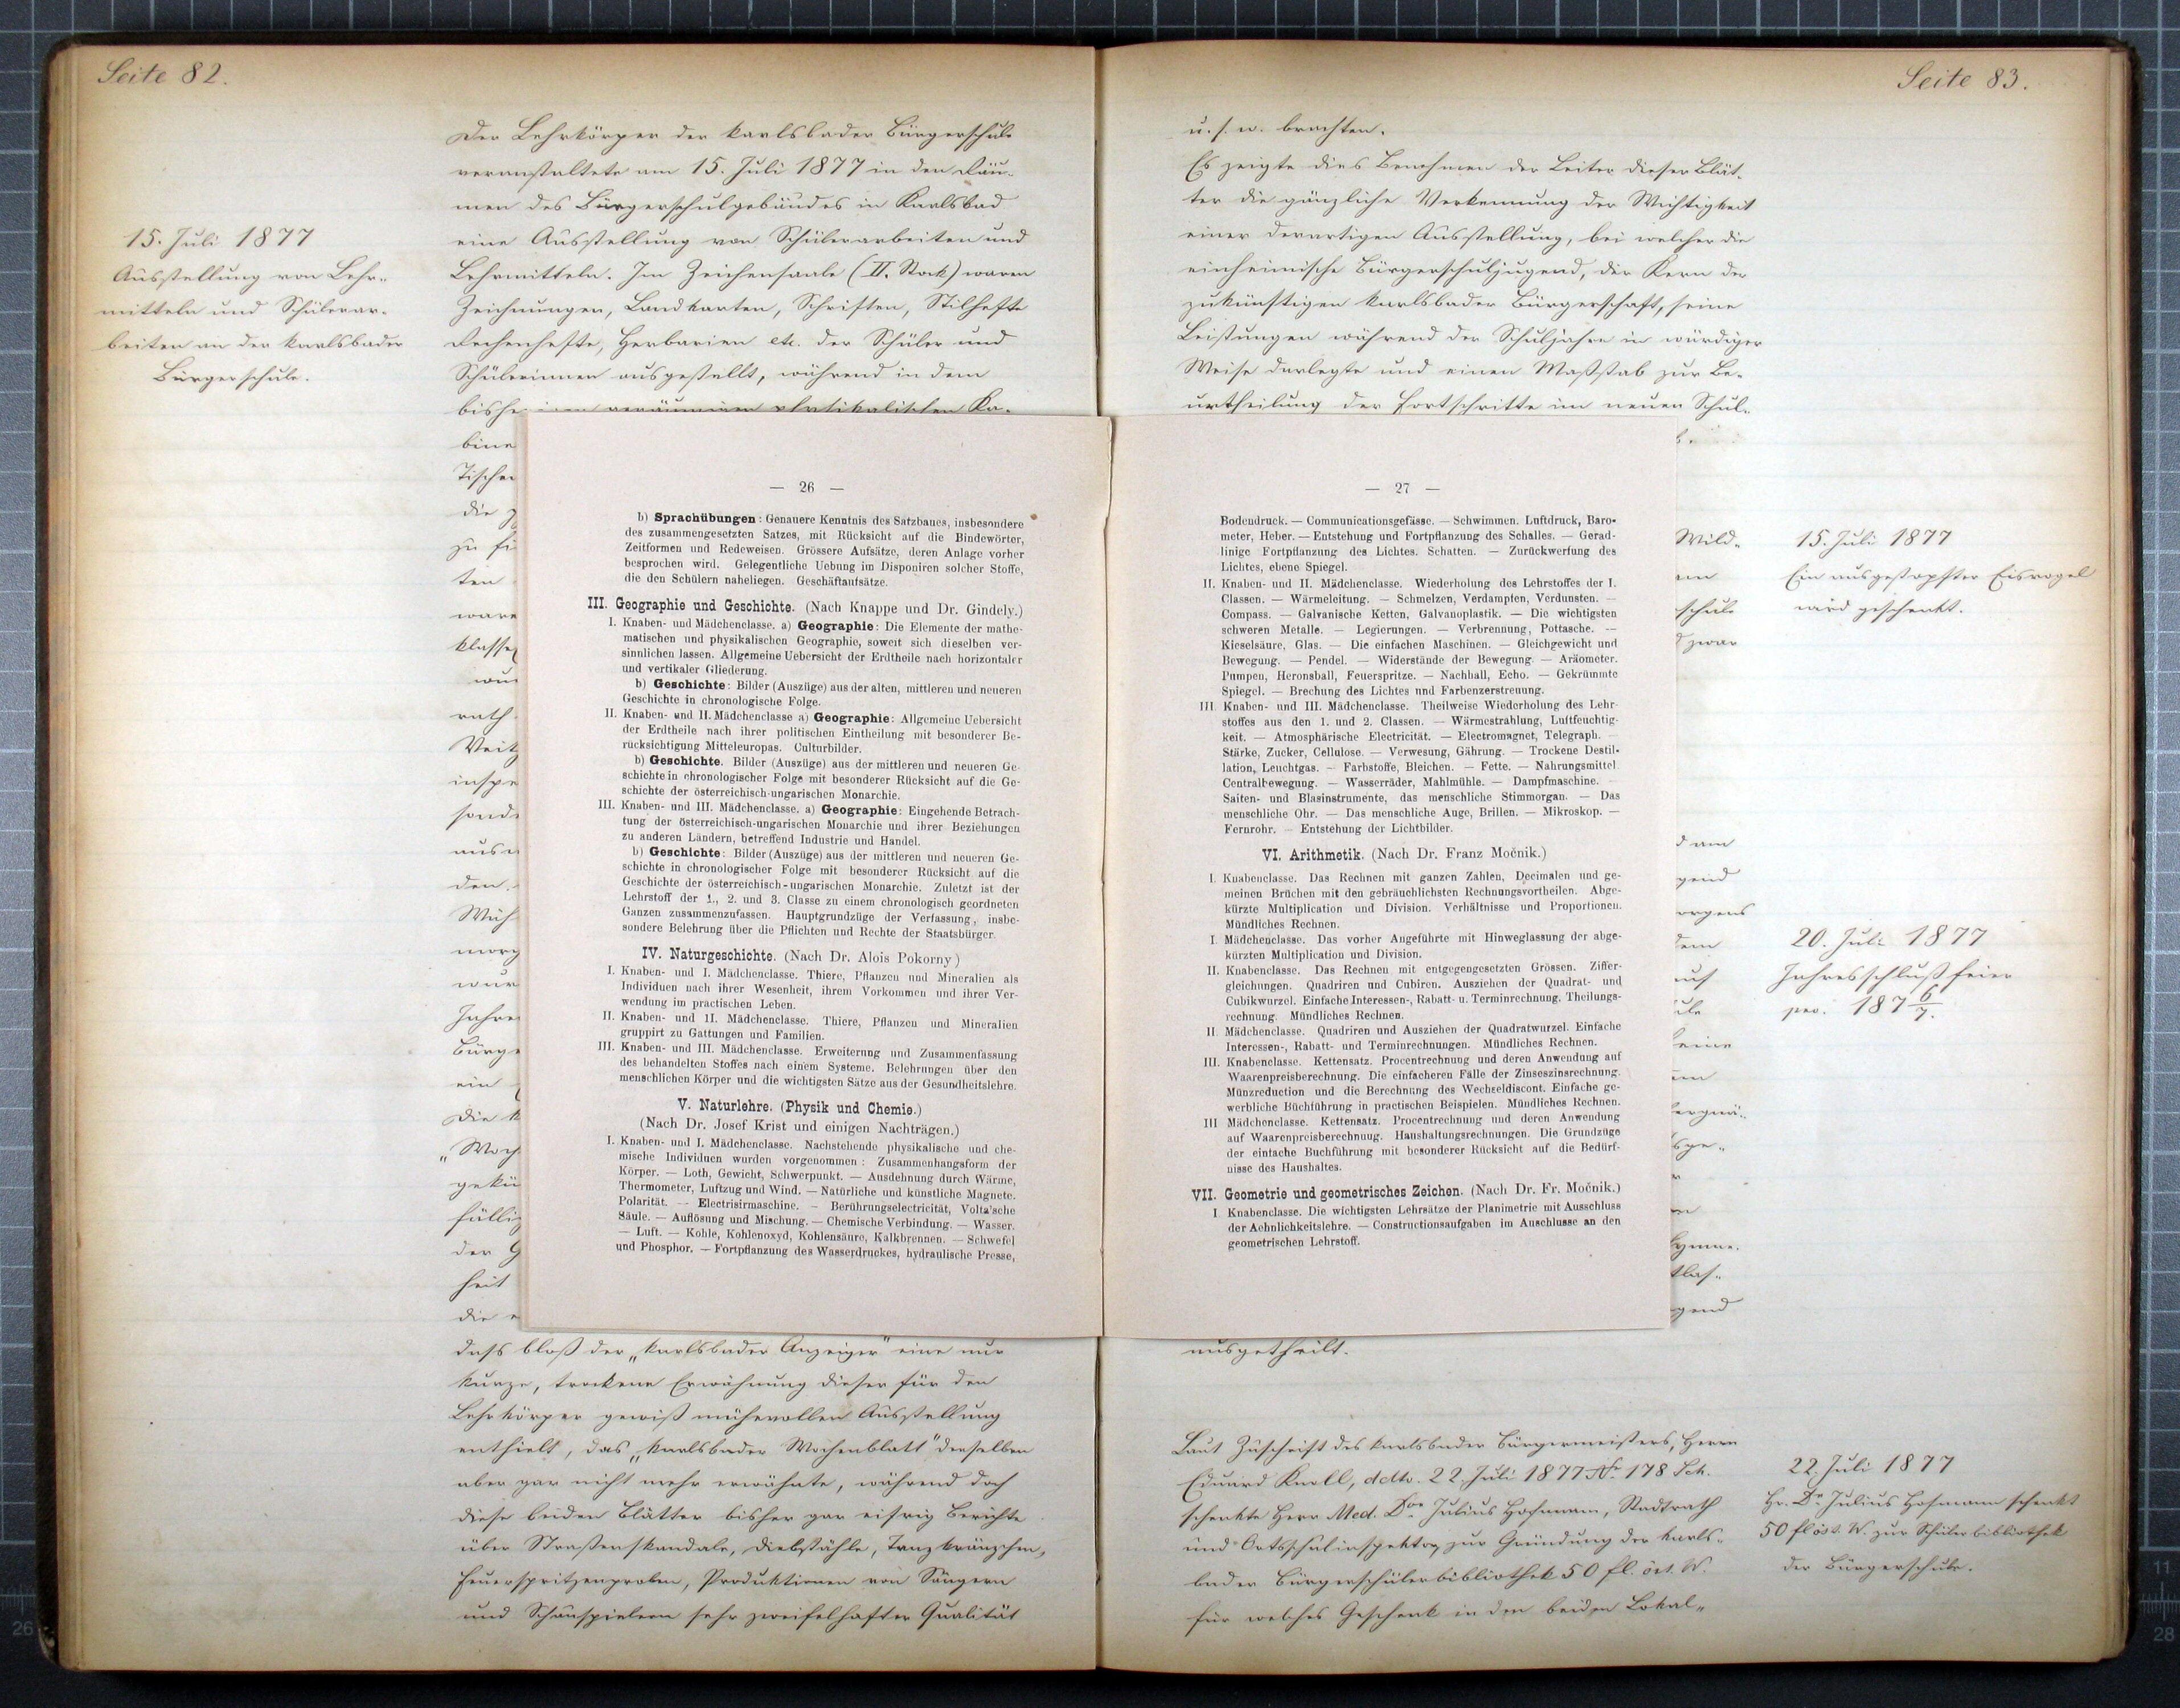 Seite 82.
Der Lehrkörper der karlsbader Bürgerschule
veranstaltete am 15. Juli 1877 in den Räu-
men des Bürgerschulgebäudes in Karlsbad
eine Ausstellung von Schülerarbeiten und
Lehrmitteln. Im Zeichensaale (II. Stock) waren
Zeichnungen, Landkarten, Schriften, Stilhefte
Rechenhefte, Herbarien etc. der Schüler und
Schülerinnen ausgestellt, während in dem
physikalischen Ka-
bine
Tische
die
zu
ten
ware
klasse
rath
Veit
inspe
sond
aus
den
morg
wur
Jahre
Bürg
ein
die k
„Woch
gekü
fälli
der G
heit
die
dass bloß der „karlsbader Anzeiger" eine nur
kurze, trockene Erwähnung dieser für den
Lehrkörper gewiß mühevollen Ausstellung
enthielt, das „karlsbader Wochenblatt" derselben
aber gar nicht mehr erwähnte, während doch
diese beiden Blätter bisher gar eifrig Berichte
über Straßenskandale, Diebstähle, Tanzkränzchen,
Feuerspritzenproben, Produktionen von Sängern
und Schauspielern sehr zweifelhafter Qualität
15. Juli 1877
Ausstellung von Lehr-
mitteln und Schülerar-
beiten an der karlsbader
Bürgerschule.
— 26 —
b) Sprachübungen: Genauere Kenntnis des Satzbaues, insbesondere
des zusammengesetzten Satzes, mit Rücksicht auf die Bindewörter,
Zeitformen und Redeweisen. Grössere Aufsätze, deren Anlage vorher
besprochen wird. Gelegentliche Uebung im Disponiren solcher Stoffe,
die den Schülern naheliegen. Geschäftaufsätze.
III. Geographie und Geschichte. (Nach Knappe und Dr. Gindely.)
I. Knaben- und Mädchenclasse. a) Geographie: Die Elemente der mathe-
matischen und physikalischen Geographie, soweit sich dieselben ver-
sinnlichen lassen. Allgemeine Uebersicht der Erdtheile nach horizontaler
und vertikaler Gliederung.
b) Geschichte: Bilder (Auszüge) aus der alten, mittleren und neueren
Geschichte in chronologische Folge.
II. Knaben- und II. Mädchenclasse a) Geographie: Allgemeine Uebersicht
der Erdtheile nach ihrer politischen Eintheilung mit besonderer Be-
rücksichtigung Mitteleuropas. Culturbilder.
b) Geschichte. Bilder (Auszüge) aus der mittleren und neueren Ge-
schichte in chronologischer Folge mit besonderer Rücksicht auf die Ge-
schichte der österreichisch-ungarischen Monarchie.
III. Knaben- und III. Mädchenclasse. a) Geographie: Eingehende Betrach-
tung der österreichisch-ungarischen Monarchie und ihrer Beziehungen
zu anderen Ländern, betreffend Industrie und Handel.
b) Geschichte: Bilder (Auszüge) aus der mittleren und neueren Ge-
schichte in chronologischer Folge mit besonderer Rücksicht auf die
Geschichte der österreichisch-ungarischen Monarchie. Zuletzt ist der
Lehrstoff der 1., 2. und 3. Classe zu einem chronologisch geordneten
Ganzen zusammenzufassen. Hauptgrundzüge der Verfassung, insbe-
sondere Belehrung über die Pflichten und Rechte der Staatsbürger.
IV. Naturgeschichte. (Nach Dr. Alois Pokorny)
I. Knaben- und I. Mädchenclasse. Thiere, Pflanzen und Mineralien als
Individuen nach ihrer Wesenheit, ihrem Vorkommen und ihrer Ver-
wendung im practischen Leben.
II. Knaben- und II. Mädchenclasse. Thiere, Pflanzen und Mineralien
gruppirt zu Gattungen und Familien.
III. Knaben- und III. Mädchenclasse. Erweiterung und Zusammenfassung
des behandelten Stoffes nach einem Systeme. Belehrungen über den
menschlichen Körper und die wichtigsten Sätze aus der Gesundheitslehre.
V. Naturlehre. (Physik und Chemie.)
(Nach Dr. Josef Krist und einigen Nachträgen.)
I. Knaben- und I. Mädchenclasse. Nachstehende physikalische und che-
mische Individuen wurden vorgenommen: Zusammenhangsform der
Körper. — Loth, Gewicht, Schwerpunkt. — Ausdehnung durch Wärme,
Thermometer, Luftzug und Wind. — Natürliche und künstliche Magnete.
Polarität. — Electrisirmaschine. — Berührungselectricität, Volta'sche
Säule. — Auflösung und Mischung. — Chemische Verbindung. — Wasser.
— Luft. — Kohle, Kohlenoxyd, Kohlensäure, Kalkbrennen. — Schwefel
und Phosphor. — Fortpflanzung des Wasserdruckes, hydraulische Presse,
— 27 —
Bodendruck. — Communicationsgefässe. — Schwimmen. Luftdruck, Baro-
meter, Heber. — Entstehung und Fortpflanzung des Schalles. — Gerad-
linige Fortpflanzung des Lichtes. Schatten. — Zurückwerfung des
Lichtes, ebene Spiegel.
II. Knaben- und II. Mädchenclasse. Wiederholung des Lehrstoffes der I.
Classen. — Wärmeleitung. — Schmelzen, Verdampfen, Verdunsten. —
Compass. — Galvanische Ketten, Galvanoplastik. — Die wichtigsten
schweren Metalle. — Legierungen. — Verbrennung, Pottasche. —
Kieselsäure, Glas. — Die einfachen Maschinen. — Gleichgewicht und
Bewegung. — Pendel. — Widerstände der Bewegung. — Aräometer.
Pumpen, Heronsball, Feuerspritze. — Nachhall, Echo. — Gekrümmte
Spiegel. — Brechung des Lichtes und Farbenzerstreuung.
III. Knaben- und III. Mädchenclasse. Theilweise Wiederholung des Lehr-
stoffes aus den 1. und 2. Classen. — Wärmestrahlung, Luftfeuchtig-
keit. — Atmosphärische Electricität. — Electromagnet, Telegraph. —
Stärke, Zucker, Cellulose. — Verwesung, Gährung. — Trockene Destil-
lation, Leuchtgas. — Farbstoffe, Bleichen. — Fette. — Nahrungsmittel
Centralbewegung. — Wasserräder, Mahlmühle. — Dampfmaschine. —
Saiten- und Blasinstrumente, das menschliche Stimmorgan. — Das
menschliche Ohr. — Das menschliche Auge, Brillen. — Mikroskop. —
Fernrohr. — Entstehung der Lichtbilder.
VI. Arithmetik. (Nach Dr. Franz Močnik.)
I. Knabenclasse. Das Rechnen mit ganzen Zahlen, Decimalen und ge-
meinen Brüchen mit den gebräuchlichsten Rechnungsvortheilen. Abge-
kürzte Multiplication und Division. Verhältnisse und Proportionen.
Mündliches Rechnen.
I. Mädchenclasse. Das vorher Angeführte mit Hinweglassung der abge-
kürzten Multiplication und Division.
II. Knabenclasse. Das Rechnen mit entgegengesetzten Grössen. Ziffer-
gleichungen. Quadriren und Cubiren. Ausziehen der Quadrat- und
Cubikwurzel. Einfache Interessen-, Rabatt- u. Terminrechnung. Theilungs-
rechnung. Mündliches Rechnen.
II. Mädchenclasse. Quadriren und Ausziehen der Quadratwurzel. Einfache
Interessen-, Rabatt- und Terminrechnungen. Mündliches Rechnen.
III. Knabenclasse. Kettensatz. Procentrechnung und deren Anwendung auf
Waarenpreisberechnung. Die einfacheren Fälle der Zinseszinsrechnung.
Münzreduction und die Berechnung des Wechseldiscont. Einfache ge-
werbliche Büchführung in practischen Beispielen. Mündliches Rechnen.
III Mädchenclasse. Kettensatz. Procentrechnung und deren Anwendung
auf Waarenpreisberechnuug. Haushaltungsrechnungen. Die Grundzüge
der eintache Buchführung mit besonderer Rücksicht auf die Bedürf-
nisse des Haushaltes.
VII. Geometrie und geometrisches Zeichen. (Nach Dr. Fr. Močnik.)
I. Knabenclasse. Die wichtigsten Lehrsätze der Planimetrie mit Ausschluss
der Aehnlichkeitslehre. — Constructionsaufgaben im Anschlusse an den
geometrischen Lehrstoff.
Seite 83.
u. s. w. brachten.
Es zeigte dies Benehmen der Leiter dieser Blät-
ter die gänzliche Verkennung der Wichtigkeit
einer derartigen Ausstellung, bei welcher die
einheimische Bürgerschuljugend, der Kern der
zukünftigen karlsbader Bürgerschaft, seine
Leistungen während der Schuljahre in würdiger
Weise darlegte und einen Maßstab zur Be-
urtheilung der Fortschritte im neuen Schul-
Wild-
schule
zwar
am
gend
orgens
dem
auf
ule
keine
gend
ausgetheilt.
Laut Zuschrift des karlsbader Bürgermeisters, Herrn
Eduard Knoll, ddto. 22. Juli 1877 No. 178 Sch.
schenkte Herr Med. Dor. Julius Hofmann, Stadtrath
und Ortsschulinspektor, zur Gründung der karls-
bader Bürgerschülerbibliothek 50 fl. öst. W.
für welches Geschenk in den beiden Lokal-
15. Juli 1877
Ein ausgestopfter Eisvogel
wird geschenkt.
20. Juli 1877
Jahresschlußfeier
pro. 187 6/7.
22. Juli 1877
Hr. Dr. Julius Hofmann schenkt
50 fl öst. W. zur Schülerbibliothek
der Bürgerschule.
26
11
28